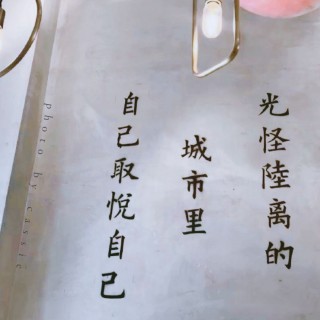 光怪陸离的
城市里
自己取悅自己
photo by cassie